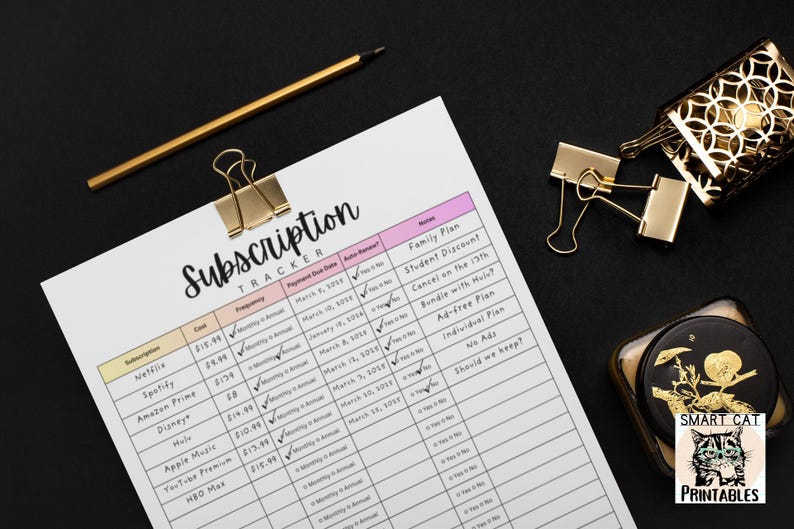 Subscription
TRACKER
Subscription Cost Frequency Payment Due Date Auto-Renew? Notes
Netflix $15.99 ✓Monthly o Annual March 5, 2025 ✓Yes o No Family Plan
Spotify $9.99 ✓Monthly o Annual March 10, 2025 ✓Yes o No Student Discount
Amazon Prime $139 o Monthly ✓Annual January 15, 2026 o Yes ✓No Cancel on the 13th
Disney+ $8 ✓Monthly o Annual March 8, 2025 ✓Yes o No Bundle with Hulu?
Hulu $14.99 ✓Monthly o Annual March 12, 2025 ✓Yes o No Ad-free Plan
Apple Music $10.99 ✓Monthly o Annual March 3, 2025 ✓Yes o No Individual Plan
YouTube Premium $13.99 ✓Monthly o Annual March 20, 2025 o Yes ✓No No Ads
HBO Max $15.99 ✓Monthly o Annual March 25, 2025 o Yes ✓No Should we keep?
o Monthly o Annual o Yes o No
o Monthly o Annual o Yes o No
o Monthly o Annual o Yes o No
o Monthly o Annual o Yes o No
SMART CAT
PRINTABLES